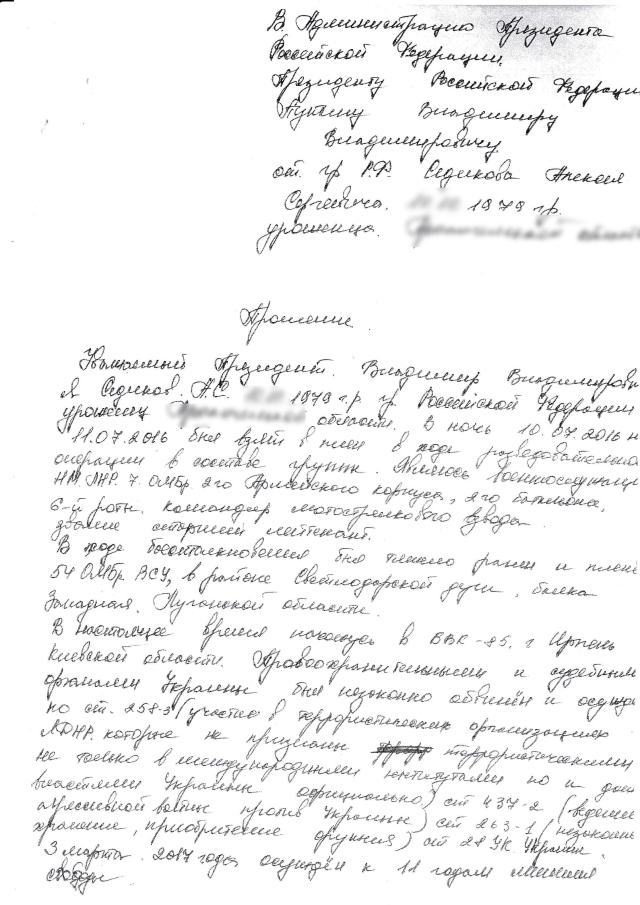 В Администрацию Президента
Российской Федерации.
Президенту Российской Федерации
Путину Владимиру
Владимировичу
от. гр Р.Ф. Седикова Алексея
Сергеевича. 1979 г.р.
уроженца.
Прошение
Уважаемый Президент. Владимир Владимирови
Я Седиков. А.С. 1979 г.р гр. Российской Федерации
уроженец области. В ночь 10.07.2016 н
11.07.2016 был взят в плен в ходе разведовательно
операции в составе группы. Являюсь военнослужащи
НМ ЛНР. 7. ОМБр. 2го Армейского корпуса, 2го батальона,
6-й роты. командир мотострелкового взвода
звание старший лейтенант.
В ходе боестолкновения был тяжело ранен и плене
54 ОМБр ВСУ, в районе Светлодарской дуги, балка
Западная. Луганской области.
В настоящее время нахожусь в ВВК-85. г Ирпень
Киевской области. Правоохранительными и судебным
органами Украины был незаконно обвинён и осужд
по ст. 258-3 (участие в террористических организациях
ЛДНР. которые не признаны террористическими
не только в международными институтами но и даж
властями Украины официально) ст 437-2 (ведение
агрессивной войны против Украины) ст 263-1 (незаконн
хранение, приобритение оружия) ст 28 УК Украины.
3 марта. 2017 года осуждён к 11 годам лишения
свободы